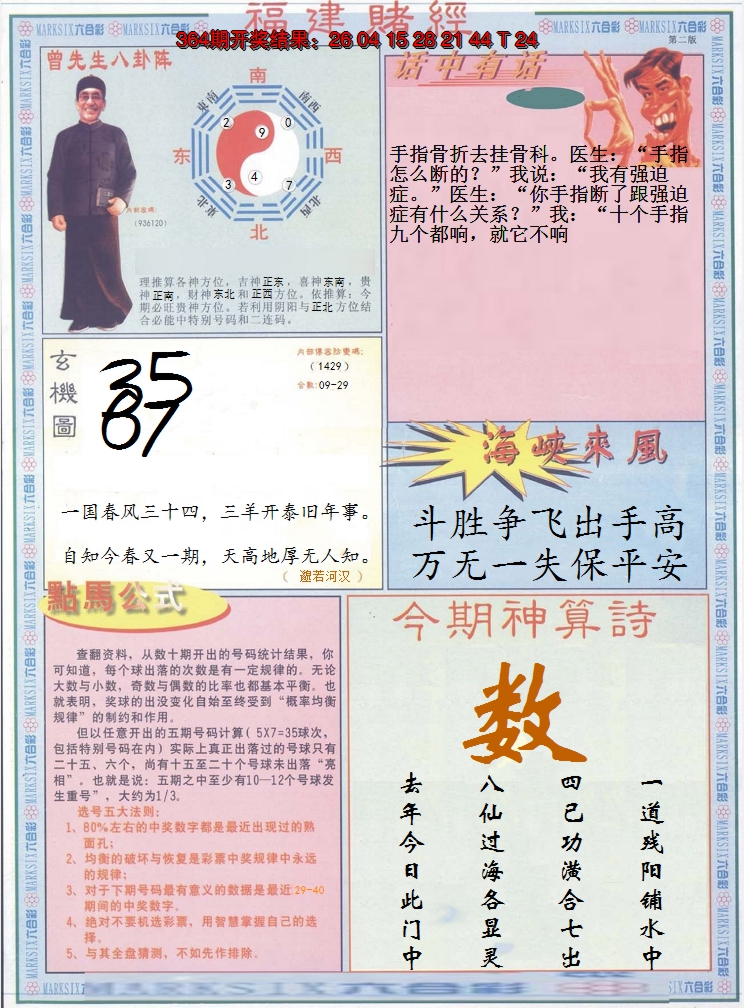 福建賭經
364期开奖结果：26 04 15 28 21 44 T 24
MARKSIX六合彩 MARKSIX六合彩
MARKSIX六合彩 MARKSIX六合彩
第二版
曾先生八卦阵
南
东南
西南
2
9
0
东
西
3
4
7
东北
西北
北
内部密碼：
（936120）
理推算各神方位，吉神正东，喜神东南，贵
神正南，财神东北和正西方位。依推算：今
期必旺贵神方位。若利用阴阳与正北方位结
合必能中特别号码和二连码。
话中有话
手指骨折去挂骨科。医生：“手指
怎么断的？”我说：“我有强迫
症。”医生：“你手指断了跟强迫
症有什么关系？”我：“十个手指
九个都响，就它不响
玄機圖
内部傳密防覺碼：
（1429）
合数：09-29
35
67
一国春风三十四，三羊开泰旧年事。
自知今春又一期，天高地厚无人知。
（ 邈若河汉 ）
海峽來風
斗胜争飞出手高
万无一失保平安
點馬公式
查翻资料，从数十期开出的号码统计结果，你
可知道，每个球出落的次数是有一定规律的。无论
大数与小数，奇数与偶数的比率也都基本平衡。也
就表明，奖球的出没变化自始至终受到“概率均衡
规律”的制约和作用。
但以任意开出的五期号码计算( 5X7=35球次，
包括特别号码在内) 实际上真正出落过的号球只有
二十五、六个，尚有十五至二十个号球未出落“亮
相”。也就是说：五期之中至少有10—12个号球发
生重号”，大约为1/3。
选号五大法则：
1、80%左右的中奖数字都是最近出现过的熟
面孔；
2、均衡的破坏与恢复是彩票中奖规律中永远
的规律；
3、对于下期号码最有意义的数据是最近29-40
期间的中奖数字。
4、绝对不要机选彩票，用智慧掌握自己的选
择。
5、与其全盘猜测，不如先作排除。
今期神算詩
数
一道残阳铺水中
四已功潢合七出
八仙过海各显灵
去年今日此门中